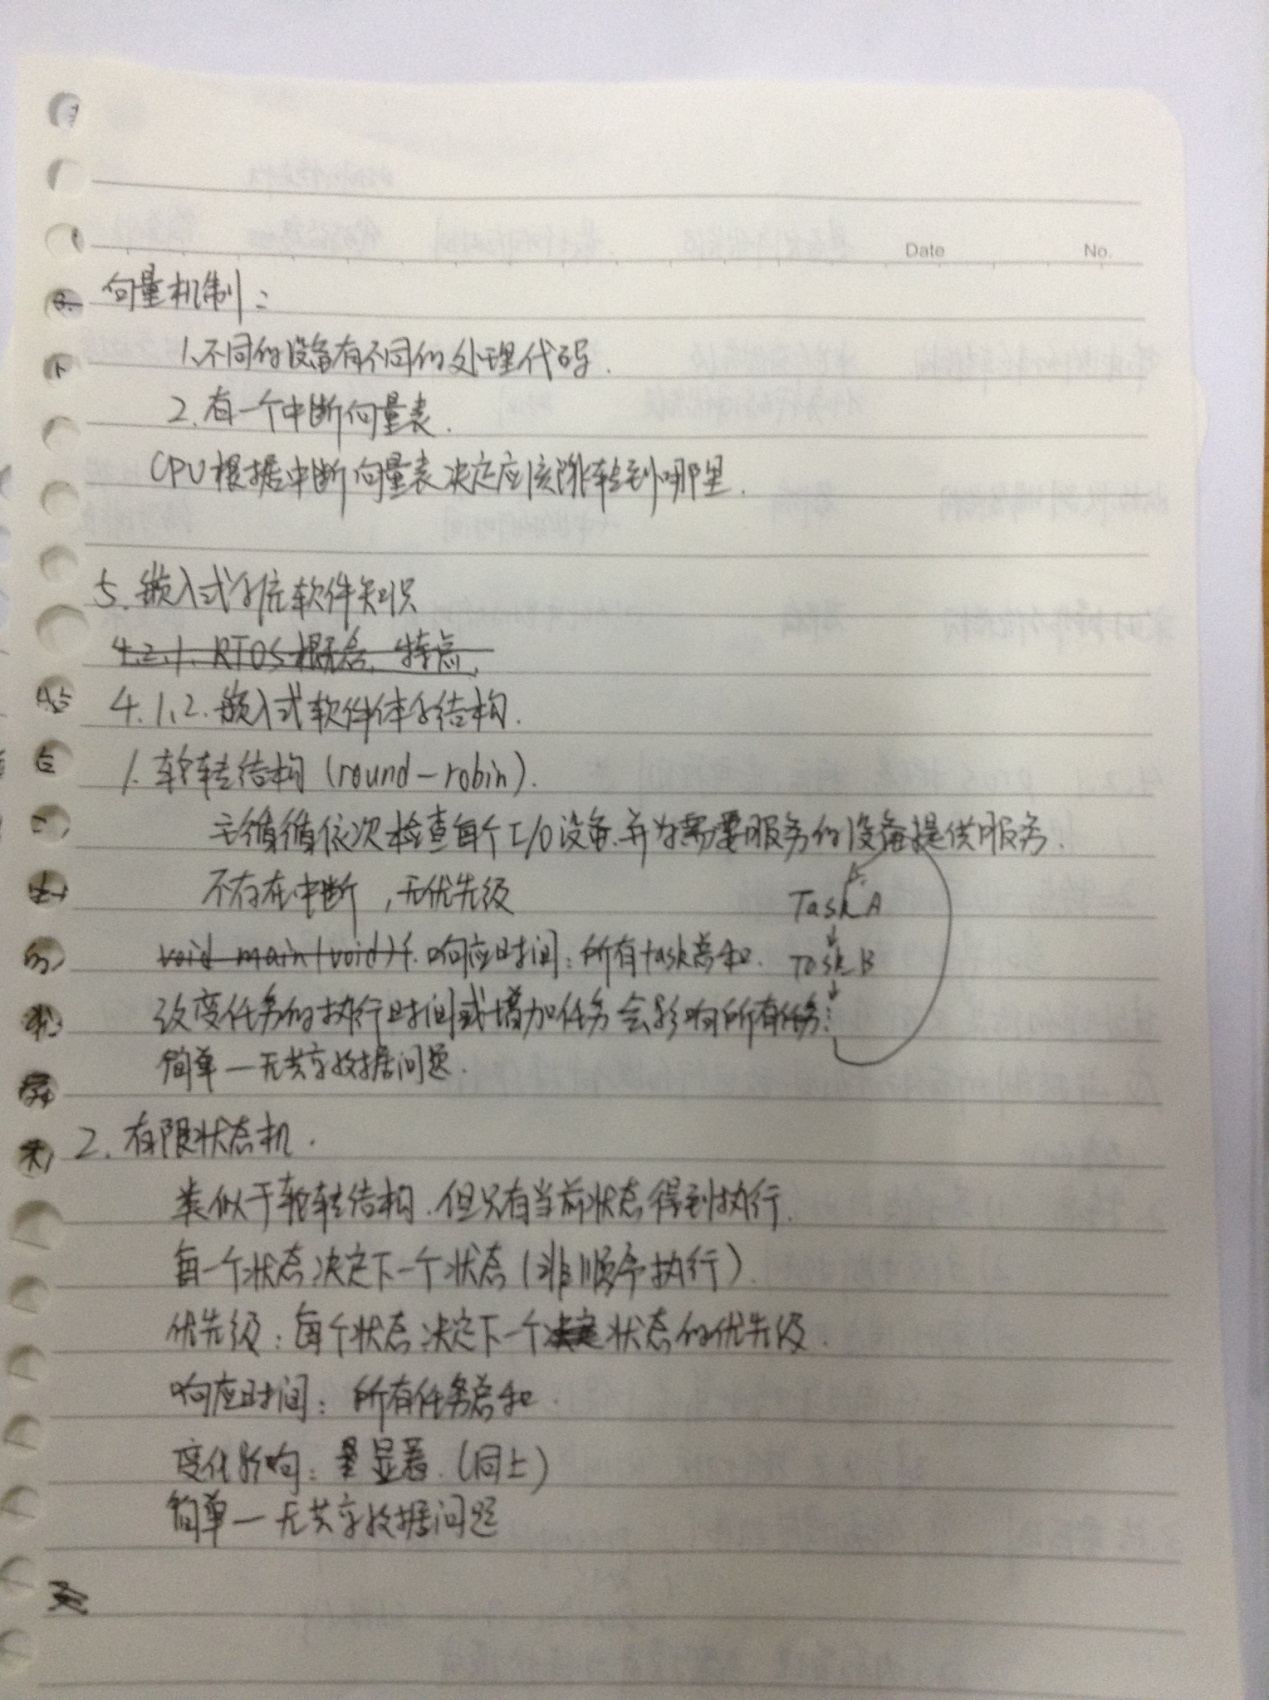 Date No.
向量机制：
1、不同的设备有不同的处理代码.
2、有一个中断向量表.
CPU根据中断向量表决定应该跳转到哪里.
5. 嵌入式系统软件知识
4.2.1. RTOS概念、特点.
4.1.2. 嵌入式软件体系结构.
1. 轮转结构 (round-robin).
主循循依次检查每个I/O设备,并为需要服务的设备提供服务.
不存在中断，无优先级
Task A
void main(void){. 响应时间：所有task总和.
Task B
改变任务的执行时间或增加任务会影响所有任务.
简单—无共享数据问题.
2. 有限状态机.
类似于轮转结构.但只有当前状态得到执行.
每一个状态决定下一个状态(非顺序执行).
优先级：每个状态决定下一个状态的优先级.
响应时间：所有任务总和.
变化影响：显著.(同上)
简单—无共享数据问题